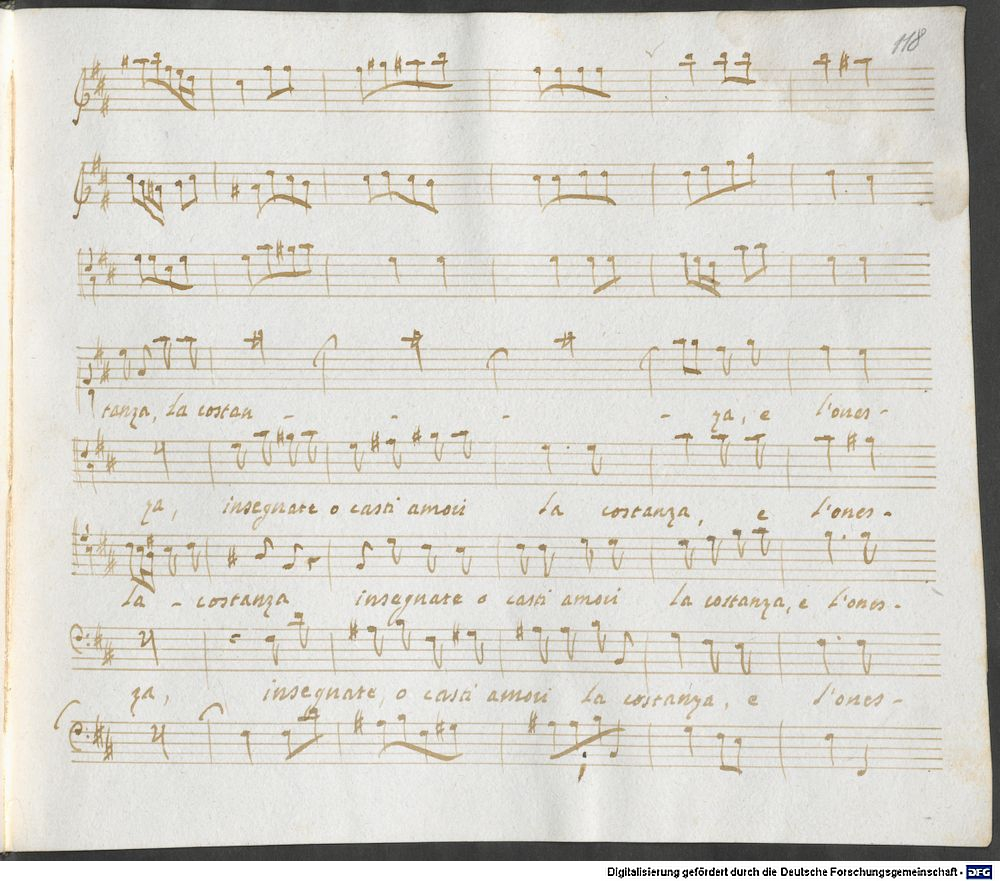 118
tanza, la costan - - - - za, e l'ones -
za, insegnate o casti amori la costanza, e l'ones -
la - costanza insegnate o casti amori la costanza, e l'ones -
za, insegnate, o casti amori la costanza, e l'ones -
Digitalisierung gefördert durch die Deutsche Forschungsgemeinschaft - DFG